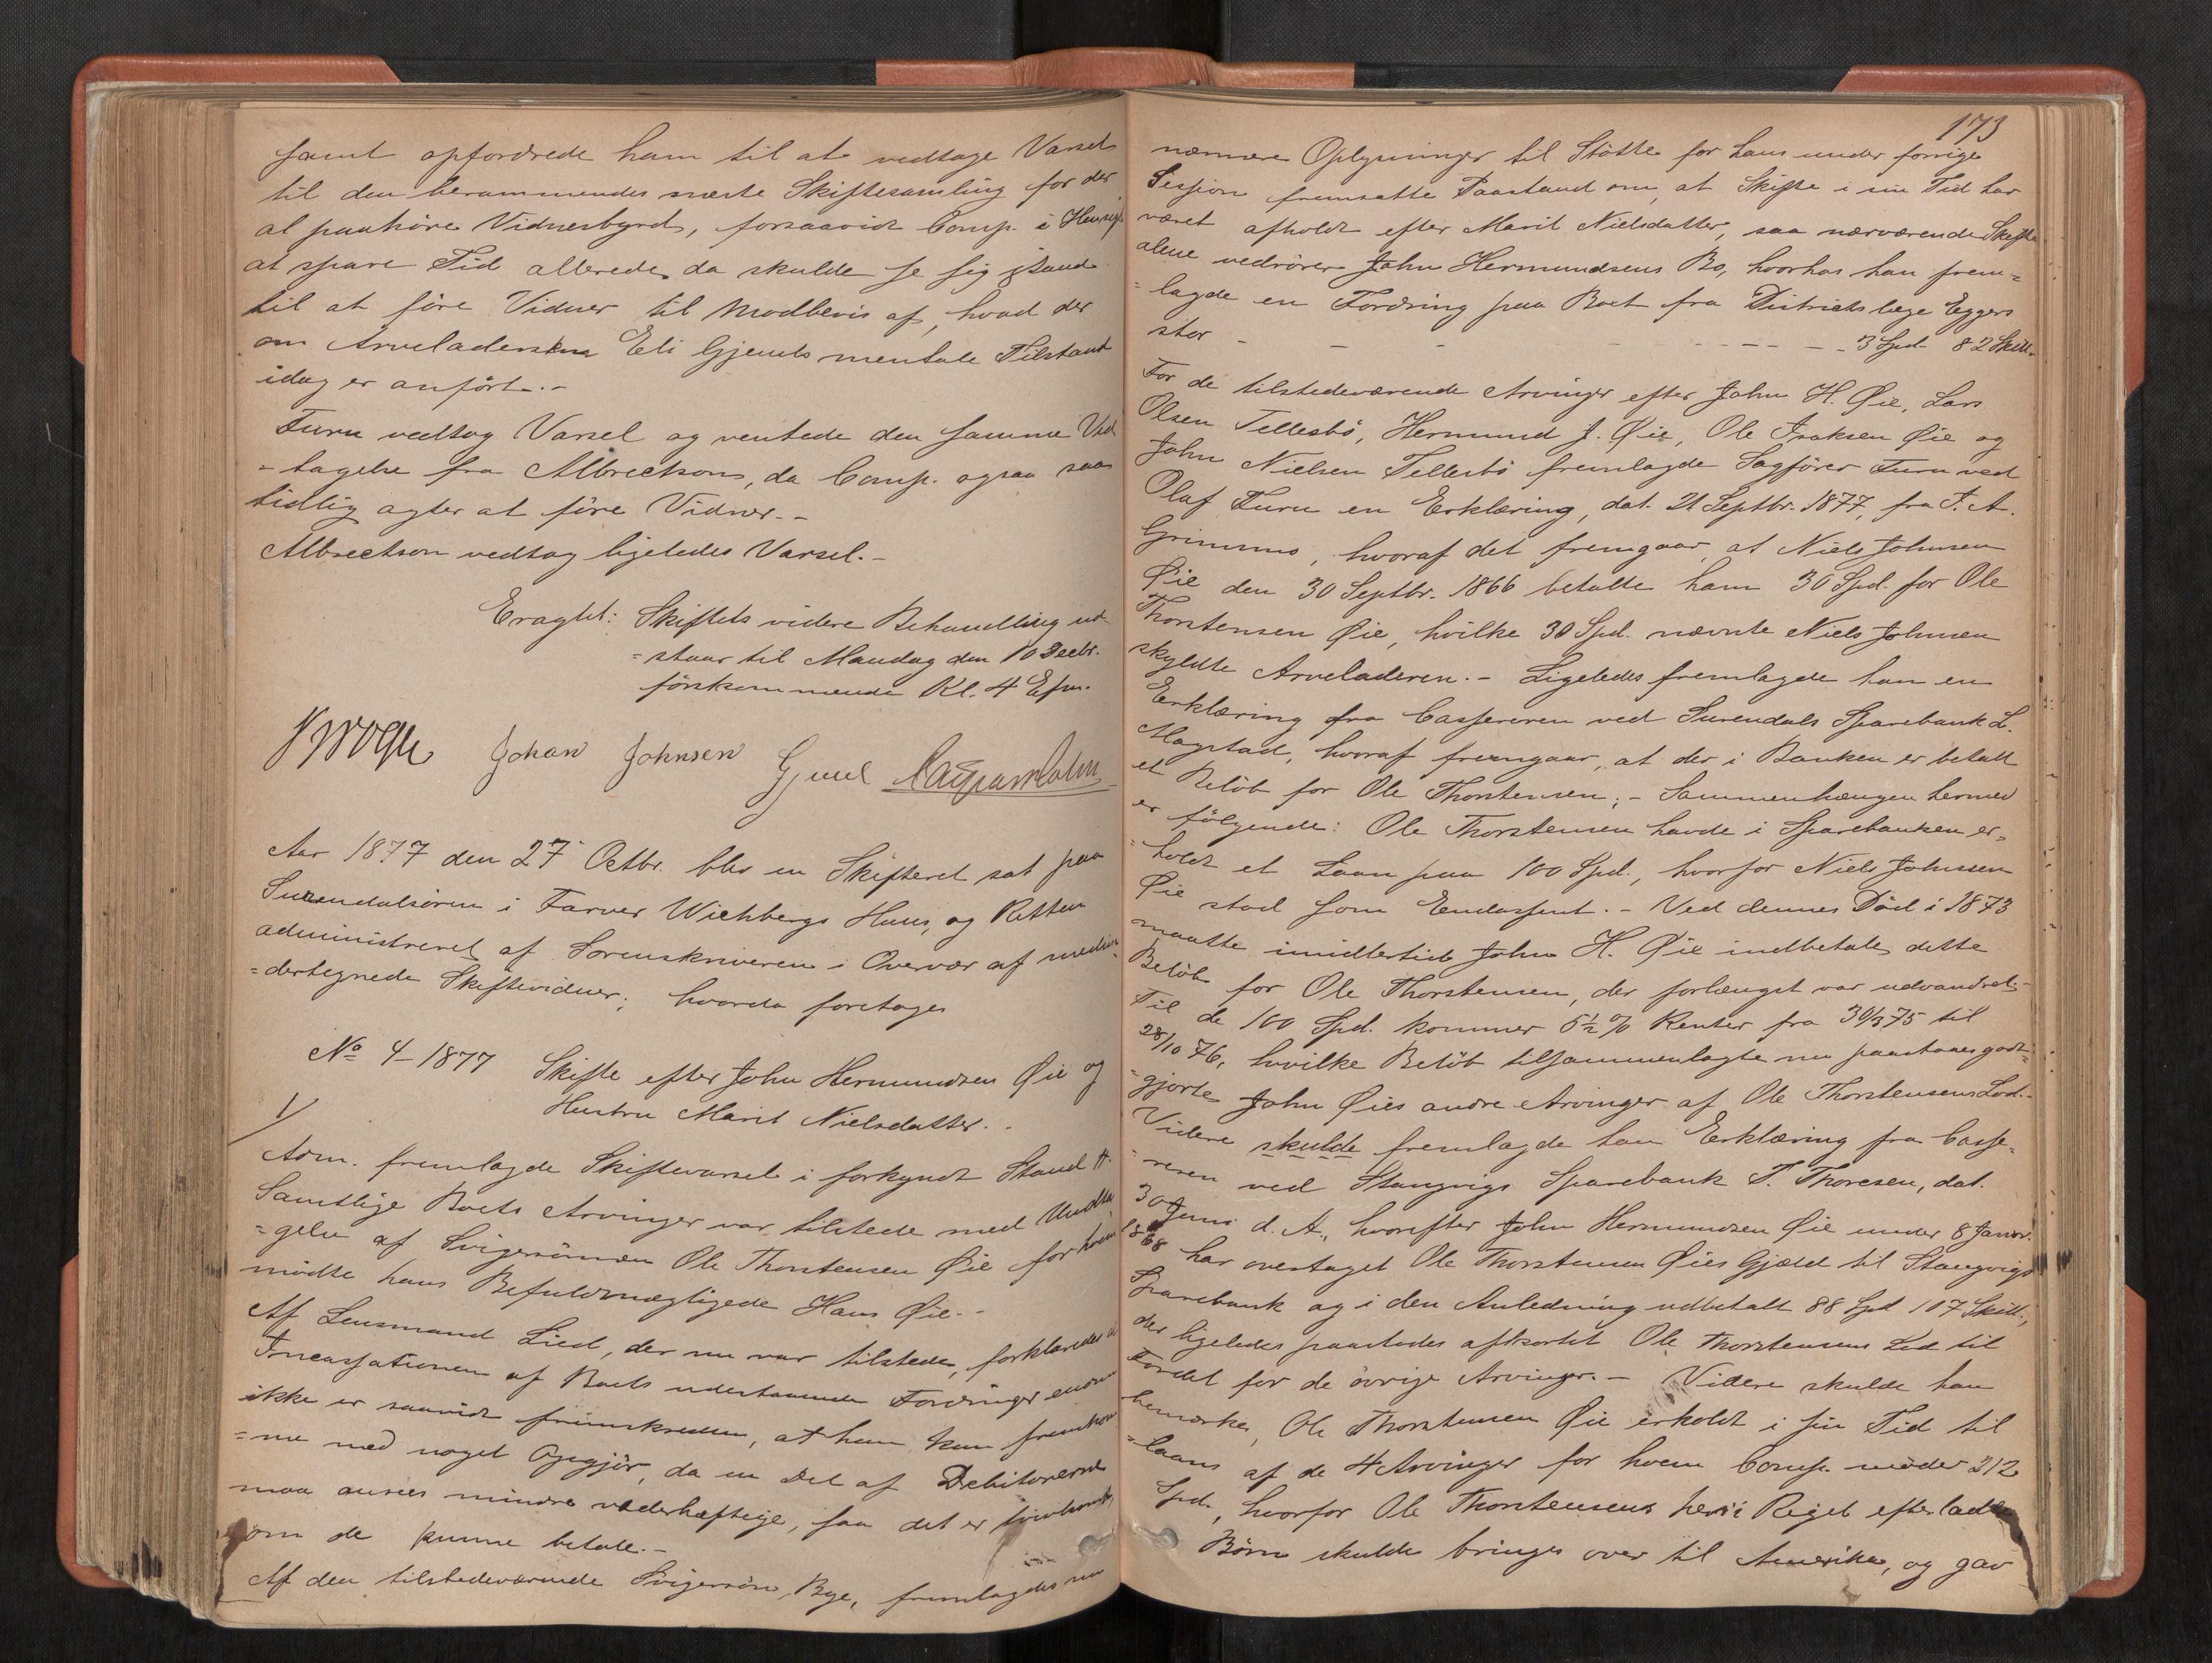 samt opfordrede ham til at vedtage Varsel
til den berammendes næste Skiftesamling for der
at paahöre Vidnesbyrd, forsaavidt Comp. i Hensigt
at spare Tid allerede da skulde se sig istand
til at före Vidner til Modbevis af, hvad der
om Arveladersken Eli Gjeuls mentale Tilstand
idag er anfört.-
Furu vedtog Varsel og ventede den samme Ved
=tagelse fra Albrectson, da Comp. ogsaa saa
tidlig agter at före Vidner.-
Albrectson vedtog ligeledes Varsel.-
Eragtet: Skiftets videre Behandling ud
=staar til Mandag den 10 Decbr.
förstkommende Kl. 4 Efm.
Johan Johnsen Gjeul
Aar 1877 den 27 Octbr. blev en Skifteret sat paa
Surendalsören i Farver Wichbergs Huus, og Retten
administreret af Sorenskriveren i Overvær af meden
=dertegnede Skiftevidner; hvorda foretoges
No 4-1877 Skifte efter John Hermundsen Øie og
Hustru Marit Nielsdatter.-
1/
Adm. fremlagde Skiftevarsel i forkyndt Stand #.
Samtlige Boets Arvinger var tilstede med Undta
=gelse af Svigersönnen Ole Thorstensen Øie for hvem
mödte hans Befuldmægtigede Hans Øie.-
Af Lensmand Lied, der nu var tilstede, forklaredes at
Incassationen af Boets udestaaende Fordringer endnu
ikke er saavidt fremskreden, at han kan fremkom
=me med noget Opgjör, da en Del af Debitorerne
maa ansees mindre vederhæftige, saa det er tvivlsomt,
om de kunne betale.-
Af den tilstedeværende Svigersön, Bye, fremlagdes nu
173
nærmere Oplysninger til Stötte for hans under forrige
Session fremsatte Paastand om, at Skifte i sin Tid har
været afholdt efter Marit Nielsdatter, saa nærværende Skifte
alene vedrörer John Hermundsens Bo, hvorhos han frem=
=lagde en Fordring paa Boet fra Distrietslæge Eggers
stor - - - - - - - 3 Spd. 82 Skill.
For de tilstedeværende Arvinger efter John H. Øie, Lars
Olsen Tellesbö, Hermund J. Øie, Ole Isaksen Øie og
John Nielsen Tellesbö fremlagde Sagförer Furu ved
Olaf Furu en Erklæring, dat. 21 Septbr. 1877, fra T. A.
Grimsmo, hvoraf det fremgaar, at Niels Johnsen
Øie den 30 Septbr. 1866 betalte ham 30 Spd. for Ole
Thorstensen Øie, hvilke 30 Spd. nævnte Niels Johnsen
skyldte Arveladeren.- Ligeledes fremlagde han en
Erklæring fra Cassereren ved Surendals Sparebank L.
Mogstad, hvoraf fremgaar, at der i Banken er betalt
et Belöb for Ole Thorstensen;- Sammenhængen hermed
er fölgende: Ole Thorstensen havde i Sparebanken er=
=holdt et Laan paa 100 Spd., hvorfor Niels Johnsen
Øie stod som Endossent.- Ved dennes Död i 1873
maatte imidlertid John H. Øie indbetale dette
Belöb for Ole Thorstensen, der forlængst var udvandret.-
Til de 100 Spd. kommer 5½ % Renter fra 30/3 75 til
28/10 76, hvilke Belöb tilsammenlagte nu paastaaes godt=
=gjorte John Øies andre Arvinger af Ole Thorstensens Lod.-
Videre skulde fremlagde han Erklæring fra Casse=
=reren ved Stangvigs Sparebank T. Thoresen, dat.
30 Juni d. A., hvorefter John Hermundsen Øie under 8 Januar
1868 har overtaget Ole Thorstensen Øies Gjæld til Stangvigs
Sparebank og i den Anledning udbetalt 88 Spd 107 Skill.,
der ligeledes paastodes afkortet Ole Thorstensens Lod til
Fordel for de övrige Arvinger.- Videre skulde han
bemærke, Ole Thorstensen Øie erholdt i sin Tid til
=laans af de 4 Arvinger for hvem Comp. möder 212
Spd., hvorfor Ole Thorstensens her i Riget efterladte
Börn skulde bringes over til Amerika, og gav